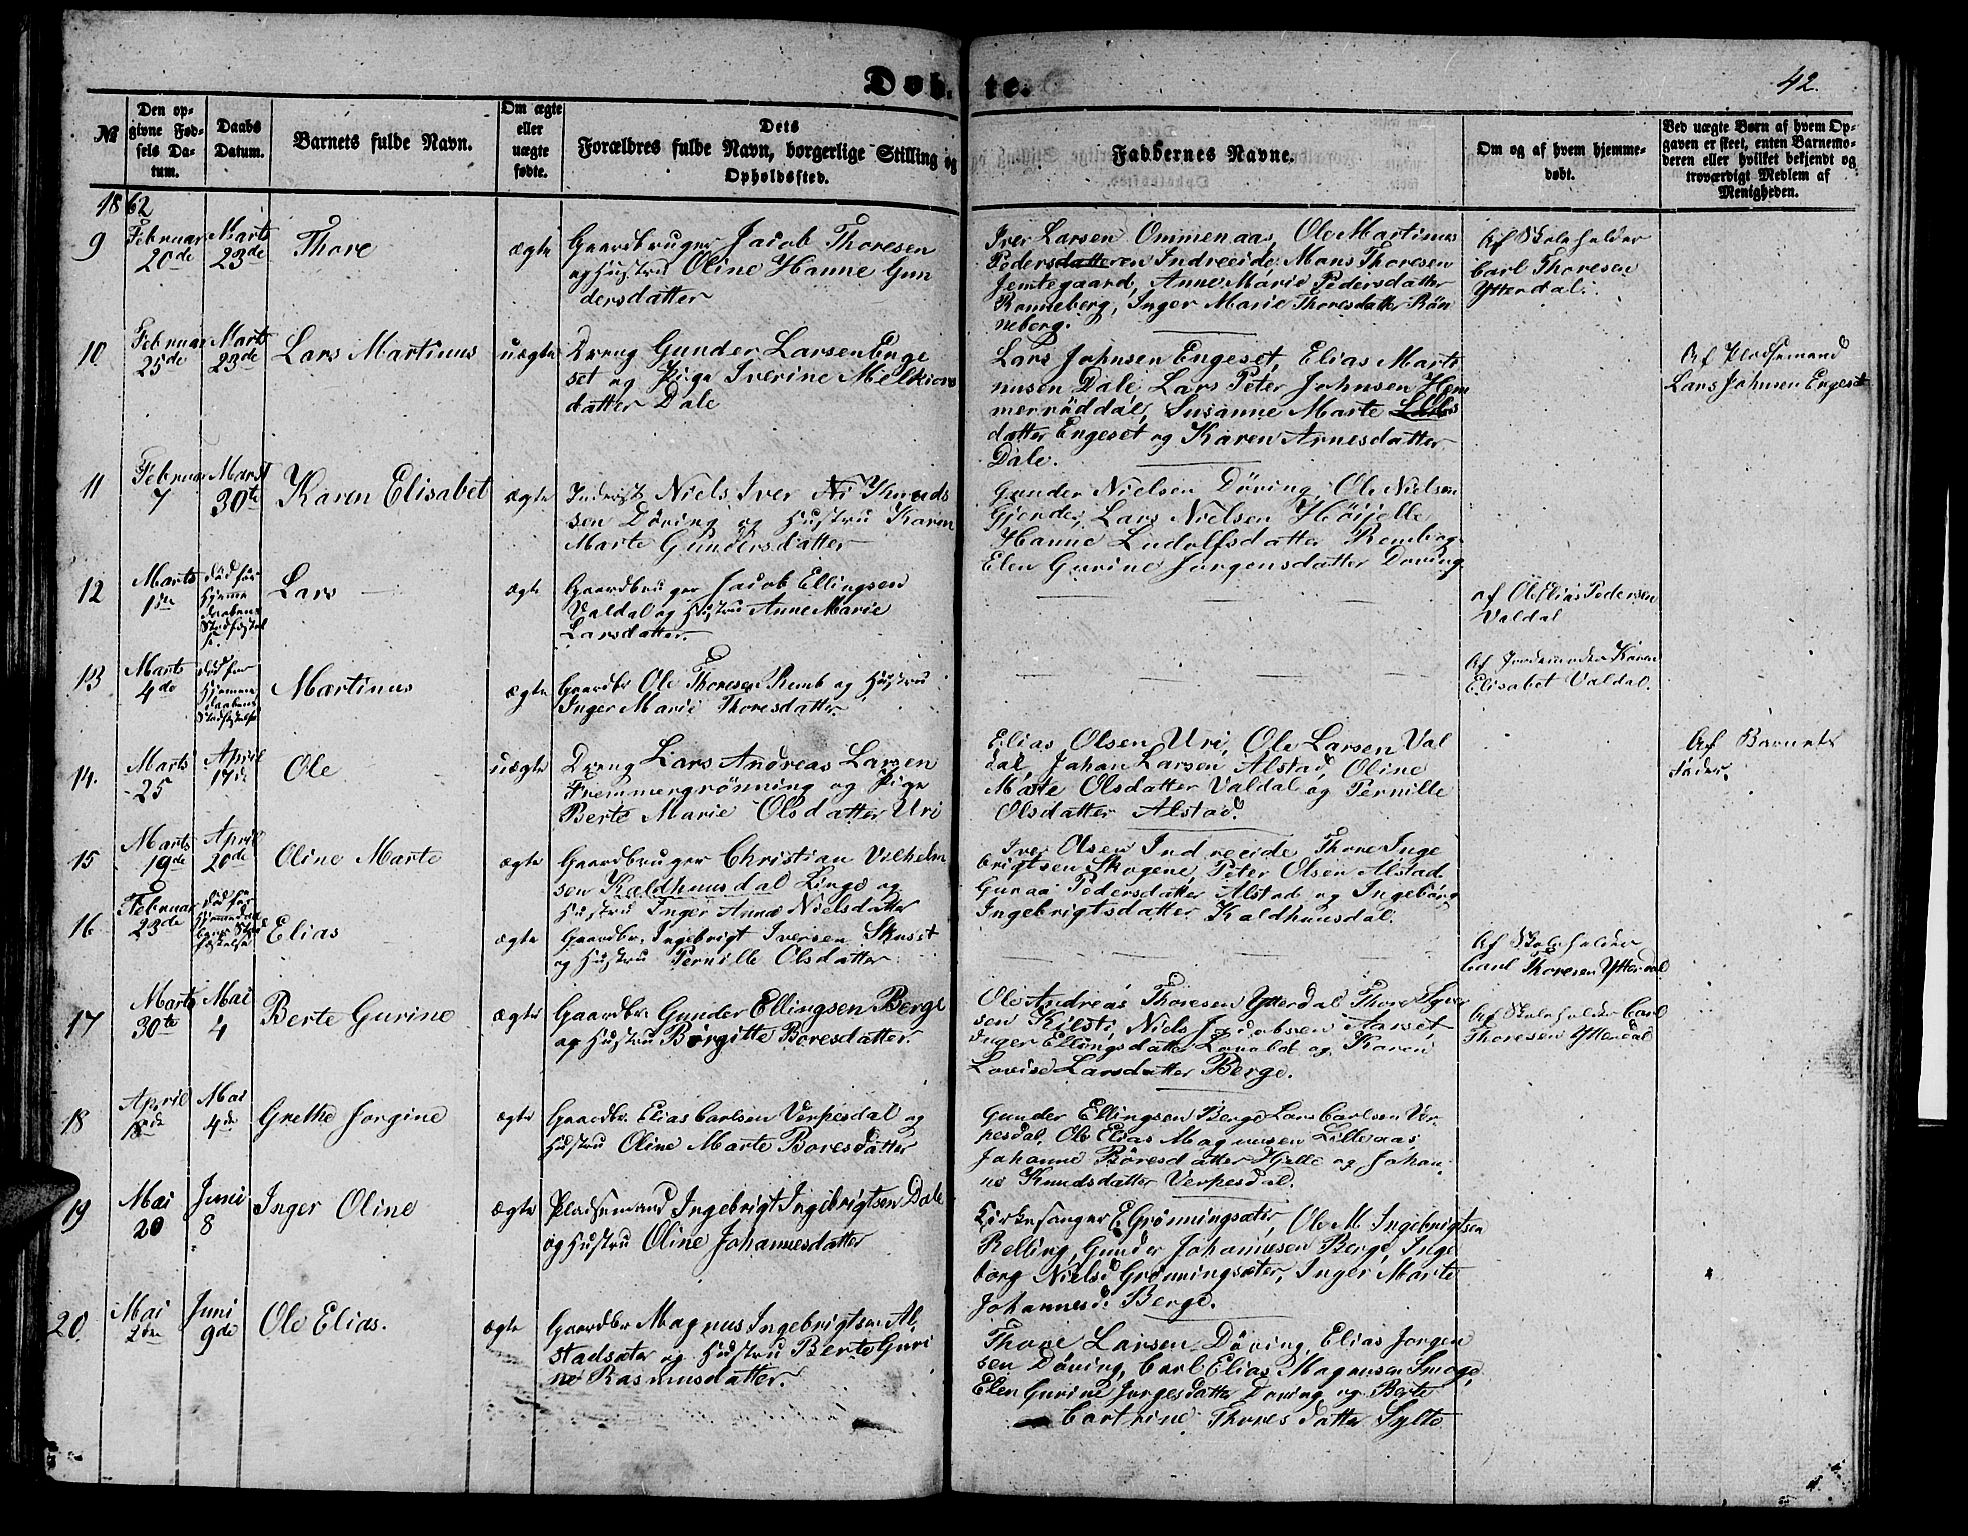 Døbte.
42.
№
Den opgivne Fødsels Datum.
Daabs Datum.
Barnets fulde Navn.
Om ægte eller uægte fødte.
Dets Forældres fulde Navn, borgerlige Stilling og Opholdssted.
Faddernes Navne.
Om og af hvem hjemmedøbt.
Ved uægte Børn af hvem Opgaven er skeet, enten Barnemoderen eller hvilket bekjendt og troværdigt Medlem af Menigheden.
1862
9
Februar 20de
Marts 23de
Thore
ægte
Gaardbruger Jacob Thoresen
og Hustru Oline Hanne Gun
dersdatter
Iver Larsen Ommenaas, Ole Martinus
Pedersdatteren Indreeide, Mons Thoresen
Jemtegaard, Anne Marie Pedersdatter
Ronneberg, Inger Marie Thoresdatter Røn
neberg.
Af Skoleholder
Carl Thoresen
Ytterdal.
10.
Februar 25de
Marts 23de
Lars Martinus
uægte
Dreng Gunder Larsen Enge
set og Pige Iverine Melkiors
datter Dale
Lars Johnsen Engeset, Elias Marti
nusen Dale, Lars Peter Johnsen Hem
merraaddal, Susanne Marte
datter Engeset og Karen Arnesdatter
Dale.
Af Pladsemand
Lars Johnsen Engeset
11
Februar 7
Marst 30te
Karen Elisabet
ægte
Inderst Niels Iver Ni Knuds
sen Døving og Hustru Karen
Marte Gundersdatter
Gunder Nielsen Døving, Ole Nielsen
Gjerde, Lars Nielsen Høijelle
Hanne Ludolfsdatter Remb og
Elen Gurine Jørgensdatter Døving
12
Marts 1ste
død før
Hjemme
daabens
Stadfæstel
se
Lars
ægte
Gaardbruger Jacob Ellingsen
Valdal og Hustru Anne Marie
Larsdatter.
af Ole Elias Pedersen
Valdal
13
Marts 4de
død før
Hjemme
daabens
Stadfæstelse
Martinus
ægte
Gaardbr Ole Thoresen Remb og Hustru
Inger Marie Thoresdatter.
Af Jordemoder Karen
Elisabet Valdal.
14.
Marts 25
April 17de
Ole
uægte
Dreng Lars Andreas Larsen
Fremmergrønning og Pige
Berte Marie Olsdatter Uri
Elias Olsen Uri, Ole Larsen Val
dal, Johan Larsen Alstad, Oline
Marte Olsdatter Valdal og Pernille
Olsdatter Alstad.
Af Barnets
Fader.
15
Marts 19de
April 20de
Oline Marte
ægte
Gaardbruger Christian Vilhelm
sen Kaldhuusdal Linge og
Hustru Inger Anne Nielsdatter
Iver Olsen Indreeide Thore Inge
brigtsen Skogene, Peter Olsen Alstad
Guraa Pedersdatter Alstad og Ingeborg
Ingebrigtsdatter Kaldhuusdal.
16
Februar 23de
død før
Elias
ægte
Gaardbr. Ingebrigt Iversen Skuset
og Hustru Pernille Olsdatter
Af Skoleholder
Carl Thoresen Ytterdal
17
Marts 30te
Mai 4
Berte Gurine
ægte
Gaardbr Gunder Ellingsen Berge
og Hustru Birgitte Boresdatter.
Ole Andreas Thoresen Ytterdal Thore Syver
sen Kilsti, Niels Jacobsen Aarset
Inger Ellingsdatter Lovald og Karen
Lovise Larsdatter Berge.
Af Skoleholder Carl
Thoresen Ytterdal
18
April
Mai 4de
Grethe Jorgine
ægte
Gaardbr. Elias Carlsen Verpesdal og
Hustru Oline Marte Boresdatter
Gunder Ellingsen Berge Lars Carlsen Ver-
pesdal, Ole Elias Magnusen Lilleaas
Johanne Boresdatter Hjelle og Johan-
ne Knudsdatter Verpesdal.
19
Mai 20
Juni 8
Inger Oline
ægte
Pladsemand Ingebrigt Ingebrigtsen Dale
og Hustru Oline Johannesdatter
Kirkesanger E Grønningsæter, Ole M. Ingebrigtsen
Relling, Gunder Johannesen Berge, Inge
borg Nielsd Grønningsæter, Inger Marte
Johannesd. Berge.
20.
Mai 2den
Juni 9de
Ole Elias.
ægte
Gaardbr Magnus Ingebrigtsen Al-
stadsæter og Hustru Berte Guri
ne Rasmusdatter.
Thore Larsen Døving, Elias Jorgen
sen Døving, Carl Elias Magnusen Smoge,
Elen Gurine Jorgesdatter Døving og Berte
Cathrine Thoresdatter Sylte